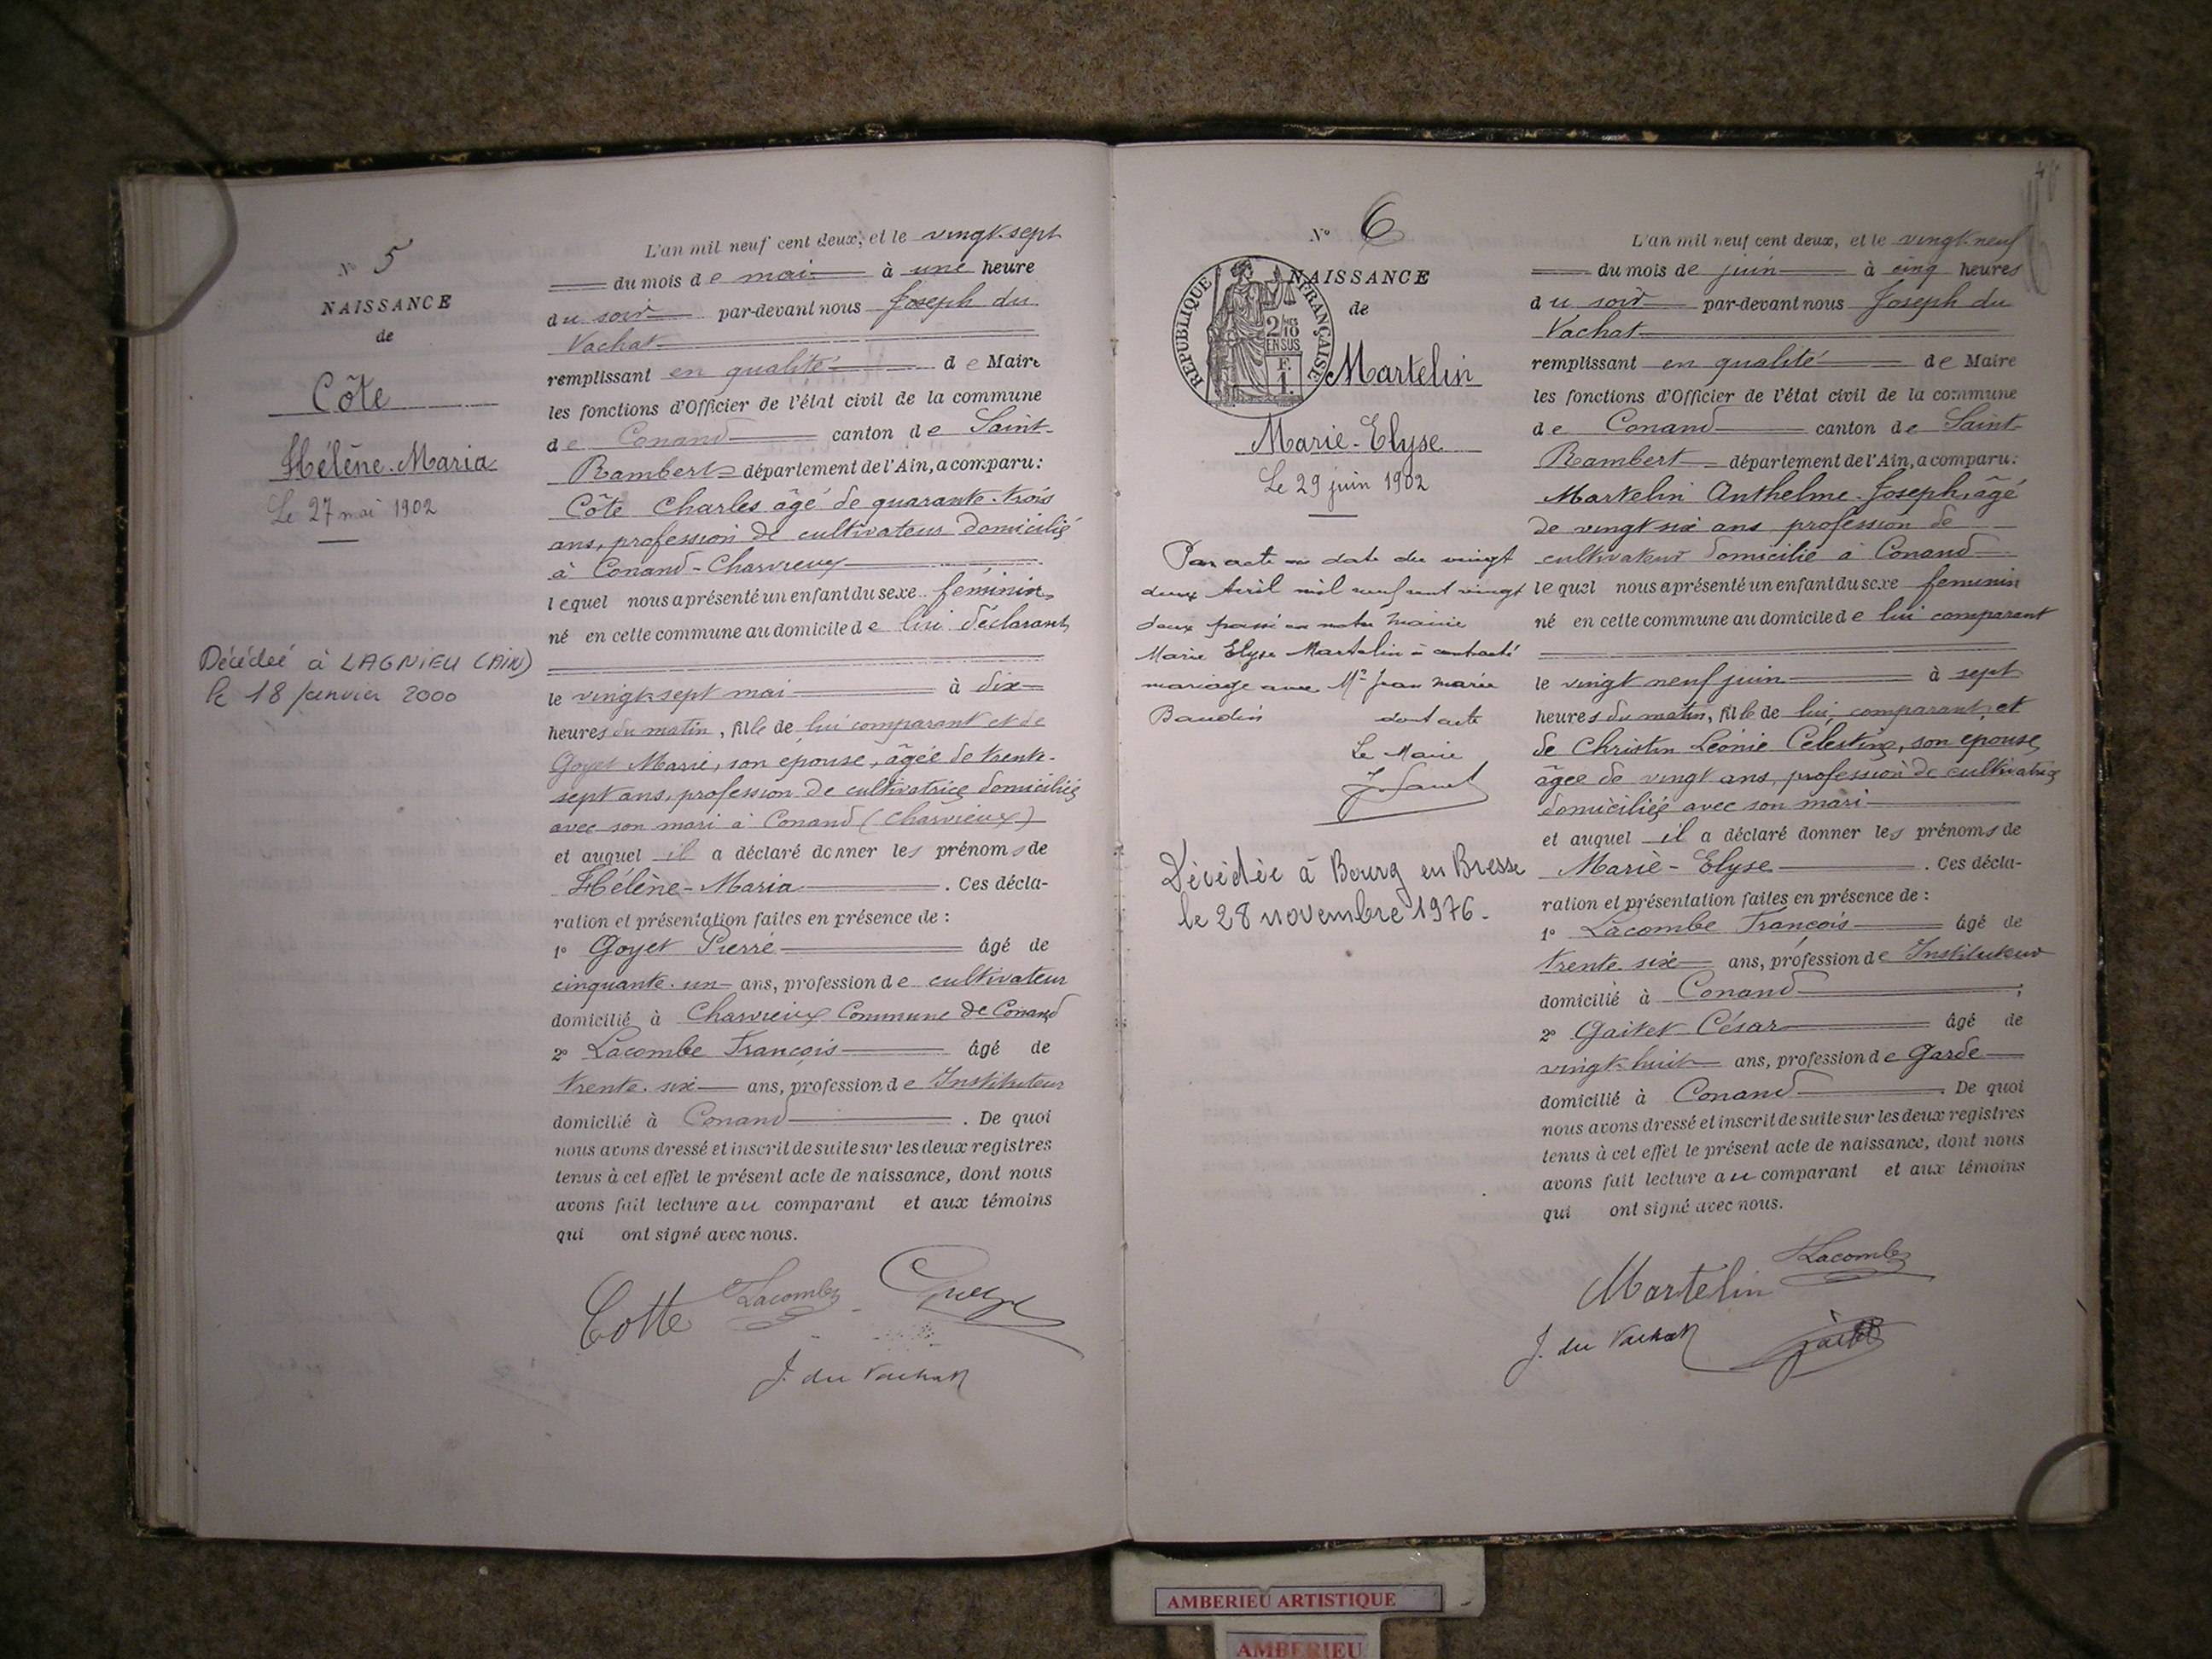 N° 5
NAISSANCE
de
Côte
Hélène-Maria
Le 27 mai 1902
Décédée à LAGNIEU (AIN)
le 18 janvier 2000
L'an mil neuf cent deux, et le vingt-sept
du mois de mai à une heure
du soir par-devant nous Joseph du
Vachat
remplissant en qualité de Maire
les fonctions d'Officier de l'état civil de la commune
de Conand canton de Saint-
Rambert département de l'Ain, a comparu:
Côte Charles âgé de quarante-trois
ans, profession de cultivateur domicilié
à Conand-Charvieux
lequel nous a présenté un enfant du sexe féminin
né en cette commune au domicile de lui déclarant
le vingt-sept mai à dix
heures du matin, fille de lui comparant et de
Goyet Marie, son épouse, âgée de trente-
sept ans, profession de cultivatrice domiciliée
avec son mari à Conand (Charvieux)
et auquel il a déclaré donner les prénoms de
Hélène-Maria. Ces décla-
ration et présentation faites en présence de :
1° Goyet Pierre âgé de
cinquante-un ans, profession de cultivateur
domicilié à Charvieux Commune de Conand
2° Lacombe François âgé de
trente-six ans, profession de Instituteur
domicilié à Conand. De quoi
nous avons dressé et inscrit de suite sur les deux registres
tenus à cet effet le présent acte de naissance, dont nous
avons fait lecture au comparant et aux témoins
qui ont signé avec nous.
Cotte Lacombe
J. du Vachat
N° 6
NAISSANCE
de
RÉPUBLIQUE FRANÇAISE
2/10 EN SUS
F. 1
Martelin
Marie-Elyse
Le 29 juin 1902
Par acte en date du vingt
deux Avril mil neuf cent vingt
deux passé en notre Mairie
Marie Elyse Martelin à contracté
mariage avec Mr Jean Marie
Baudin dont acte
Le Maire
Décédée à Bourg en Bresse
le 28 novembre 1976.
L'an mil neuf cent deux, et le vingt-neuf
du mois de juin à cinq heures
du soir par-devant nous Joseph du
Vachat
remplissant en qualité de Maire
les fonctions d'Officier de l'état civil de la commune
de Conand canton de Saint-
Rambert département de l'Ain, a comparu:
Martelin Anthelme-Joseph, âgé
de vingt six ans profession de
cultivateur domicilié à Conand
lequel nous a présenté un enfant du sexe féminin
né en cette commune au domicile de lui comparant
le vingt neuf juin à sept
heures du matin, fille de lui comparant et
de Christin Léonie Célestine, son épouse
âgée de vingt ans, profession de cultivatrice
domiciliée avec son mari
et auquel il a déclaré donner les prénoms de
Marie-Elyse. Ces décla-
ration et présentation faites en présence de :
1° Lacombe François âgé de
trente six ans, profession de Instituteur
domicilié à Conand;
2° Gaitet César âgé de
vingt-huit ans, profession de Garde
domicilié à Conand. De quoi
nous avons dressé et inscrit de suite sur les deux registres
tenus à cet effet le présent acte de naissance, dont nous
avons fait lecture au comparant et aux témoins
qui ont signé avec nous.
Martelin Lacombe
J. du Vachat
AMBERIEU ARTISTIQUE
AMBERIEU